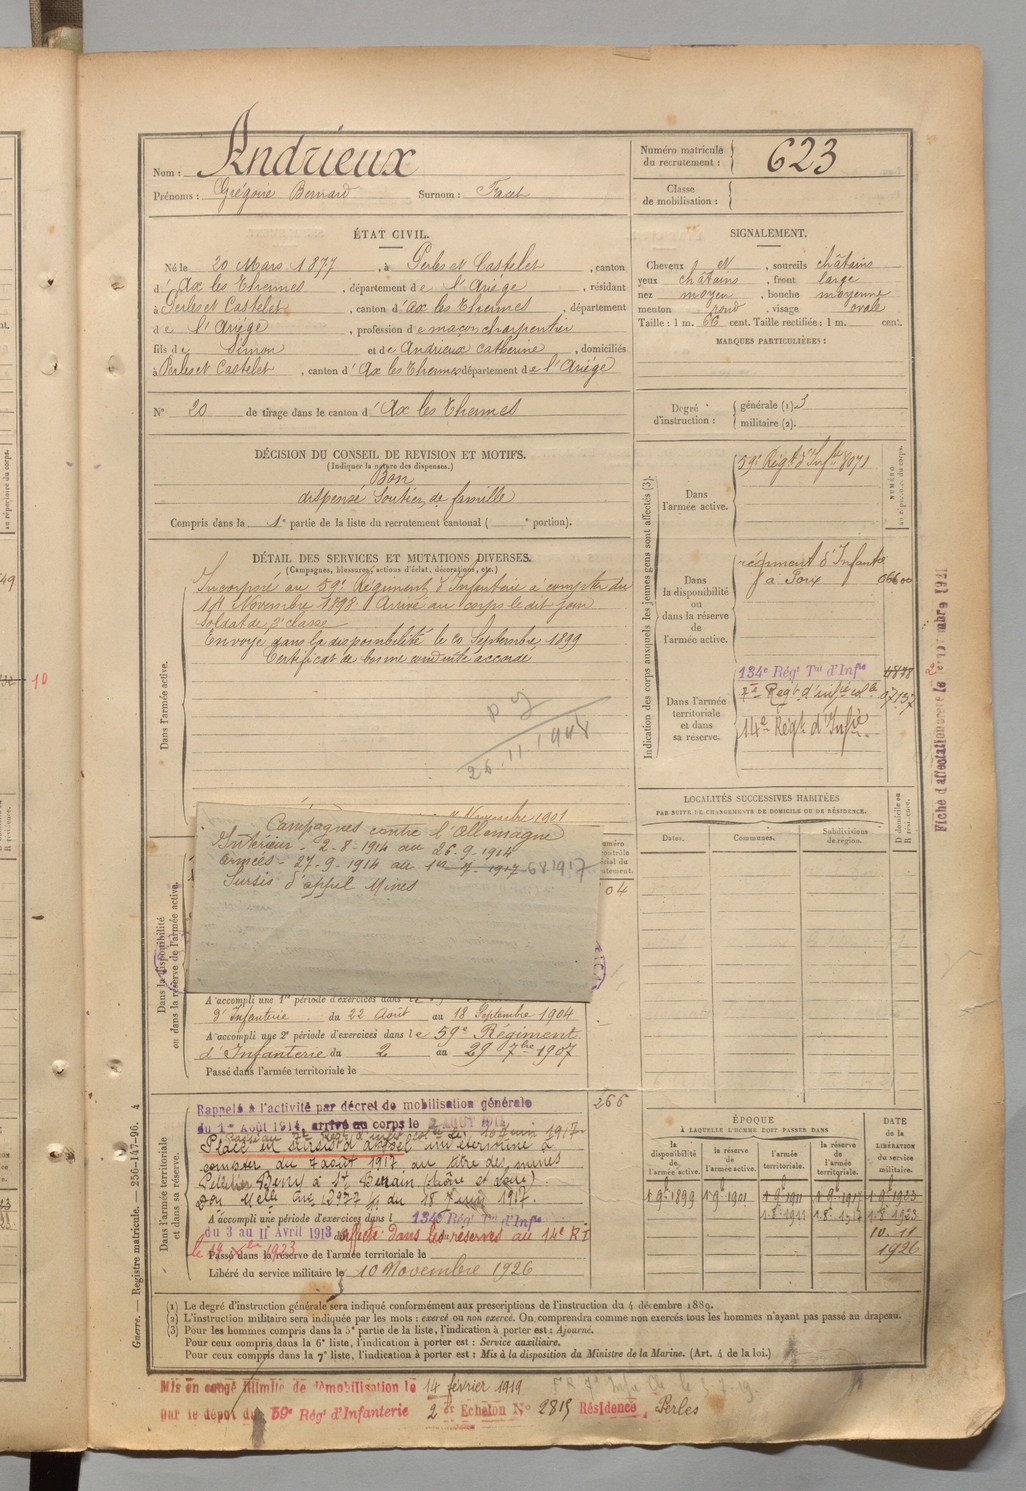 Nom : Andrieux
Prénoms : Grégoire Bernard Surnom :
Numéro matricule du recrutement : 623
Classe de mobilisation :
ÉTAT CIVIL.
Né le 20 Mars 1877, à Perles et Castelet, canton
d'Ax les Thermes, département de l'Ariège, résidant
à Perles et Castelet, canton d'Ax les Thermes, département
de l'Ariège, profession de maçon charpentier
fils de Simon et de Andrieux Catherine, domiciliés
à Perles et Castelet, canton d'Ax les Thermes département de l'Ariège
N° 20 de tirage dans le canton d'Ax les Thermes
SIGNALEMENT.
Cheveux et, sourcils châtains
yeux châtains, front large
nez moyen, bouche moyenne
menton rond, visage ovale
Taille : 1 m. 66 cent. Taille rectifiée : 1 m. cent.
MARQUES PARTICULIÈRES :
Degré d'instruction :
générale (1). 3
militaire (2).
DÉCISION DU CONSEIL DE REVISION ET MOTIFS.
(Indiquer la nature des dispenses.)
Bon
dispensé Soutien de famille
Compris dans la 1e partie de la liste du recrutement cantonal ( e portion).
DÉTAIL DES SERVICES ET MUTATIONS DIVERSES.
(Campagnes, blessures, actions d'éclat, décorations, etc.)
Dans l'armée active.
Incorporé au 59e Régiment d'Infanterie à compter du
Novembre 1898. Arrivé au corps le dit jour
Soldat de 2e classe
Envoyé dans la disponibilité le 20 Septembre 1899
Certificat de bonne conduite accordé
26.11.1948
Novembre 1901
Campagnes contre l'Allemagne
Intérieur - 2-8-1914 au 26-9-1914
Armées - 27-9-1914 au 1er-7-1917 6 8 1917
Sursis d'appel Mines
04
Dans la disponibilité ou dans la réserve de l'armée active.
A accompli une 1re période d'exercices dans le
d'Infanterie du 22 Août au 18 Septembre 1904
A accompli une 2e période d'exercices dans le 59e Régiment
d'Infanterie du 2 au 29 7bre 1907
Passé dans l'armée territoriale le
Dans l'armée territoriale et dans sa réserve.
Rappelé à l'activité par décret de mobilisation générale
du 1er Août 1914, arrivé au corps le 2 AOUT 1914
Placé en sursis d'appel indéterminé à
compter du 7 août 1917 au titre des mines
à St Berain (Saône et Loire)
266
A accompli une période d'exercices dans l 134e Régt Tal d'Infie
du 3 au 11 Avril 1913 Affecté dans les réserves au 14e RI
Passé dans la réserve de l'armée territoriale le
Libéré du service militaire le 10 Novembre 1926
Indication des corps auxquels les jeunes gens sont affectés (3).
NUMÉRO au répertoire du corps.
Dans l'armée active. 59e Régt d'Infie 8071
Dans la disponibilité ou dans la réserve de l'armée active.
régiment d'Infantie
à Foix
Dans l'armée territoriale et dans sa réserve.
134e Régt Tal d'Infie 4878
14e Régt d'Infie
Fiche d'affectation
LOCALITÉS SUCCESSIVES HABITÉES
PAR SUITE DE CHANGEMENTS DE DOMICILE OU DE RÉSIDENCE.
Dates. Communes. Subdivisions de région. D domicile ou R résidence.
ÉPOQUE
À LAQUELLE L'HOMME DOIT PASSER DANS
DATE de la LIBÉRATION du service militaire.
la disponibilité de l'armée active. la réserve de l'armée active. l'armée territoriale. la réserve de l'armée territoriale.
1 9bre 1899 1 9bre 1901 1 9bre 1911 1 9bre 1917 1 9bre 1923
10-11
1926
Guerre. — Registre matricule. — 256-147-96. 4
(1) Le degré d'instruction générale sera indiqué conformément aux prescriptions de l'instruction du 4 décembre 1889.
(2) L'instruction militaire sera indiquée par les mots : exercé ou non exercé. On comprendra comme non exercés tous les hommes n'ayant pas passé au drapeau.
(3) Pour les hommes compris dans la 5e partie de la liste, l'indication à porter est : Ajourné.
Pour ceux compris dans la 6e liste, l'indication à porter est : Service auxiliaire.
Pour ceux compris dans la 7e liste, l'indication à porter est : Mis à la disposition du Ministre de la Marine. (Art. 4 de la loi.)
Mis en congé illimité de démobilisation le 14 février 1919
par le dépôt du 59e Régt d'Infanterie 2 Echelon N° 2815 Résidence Perles